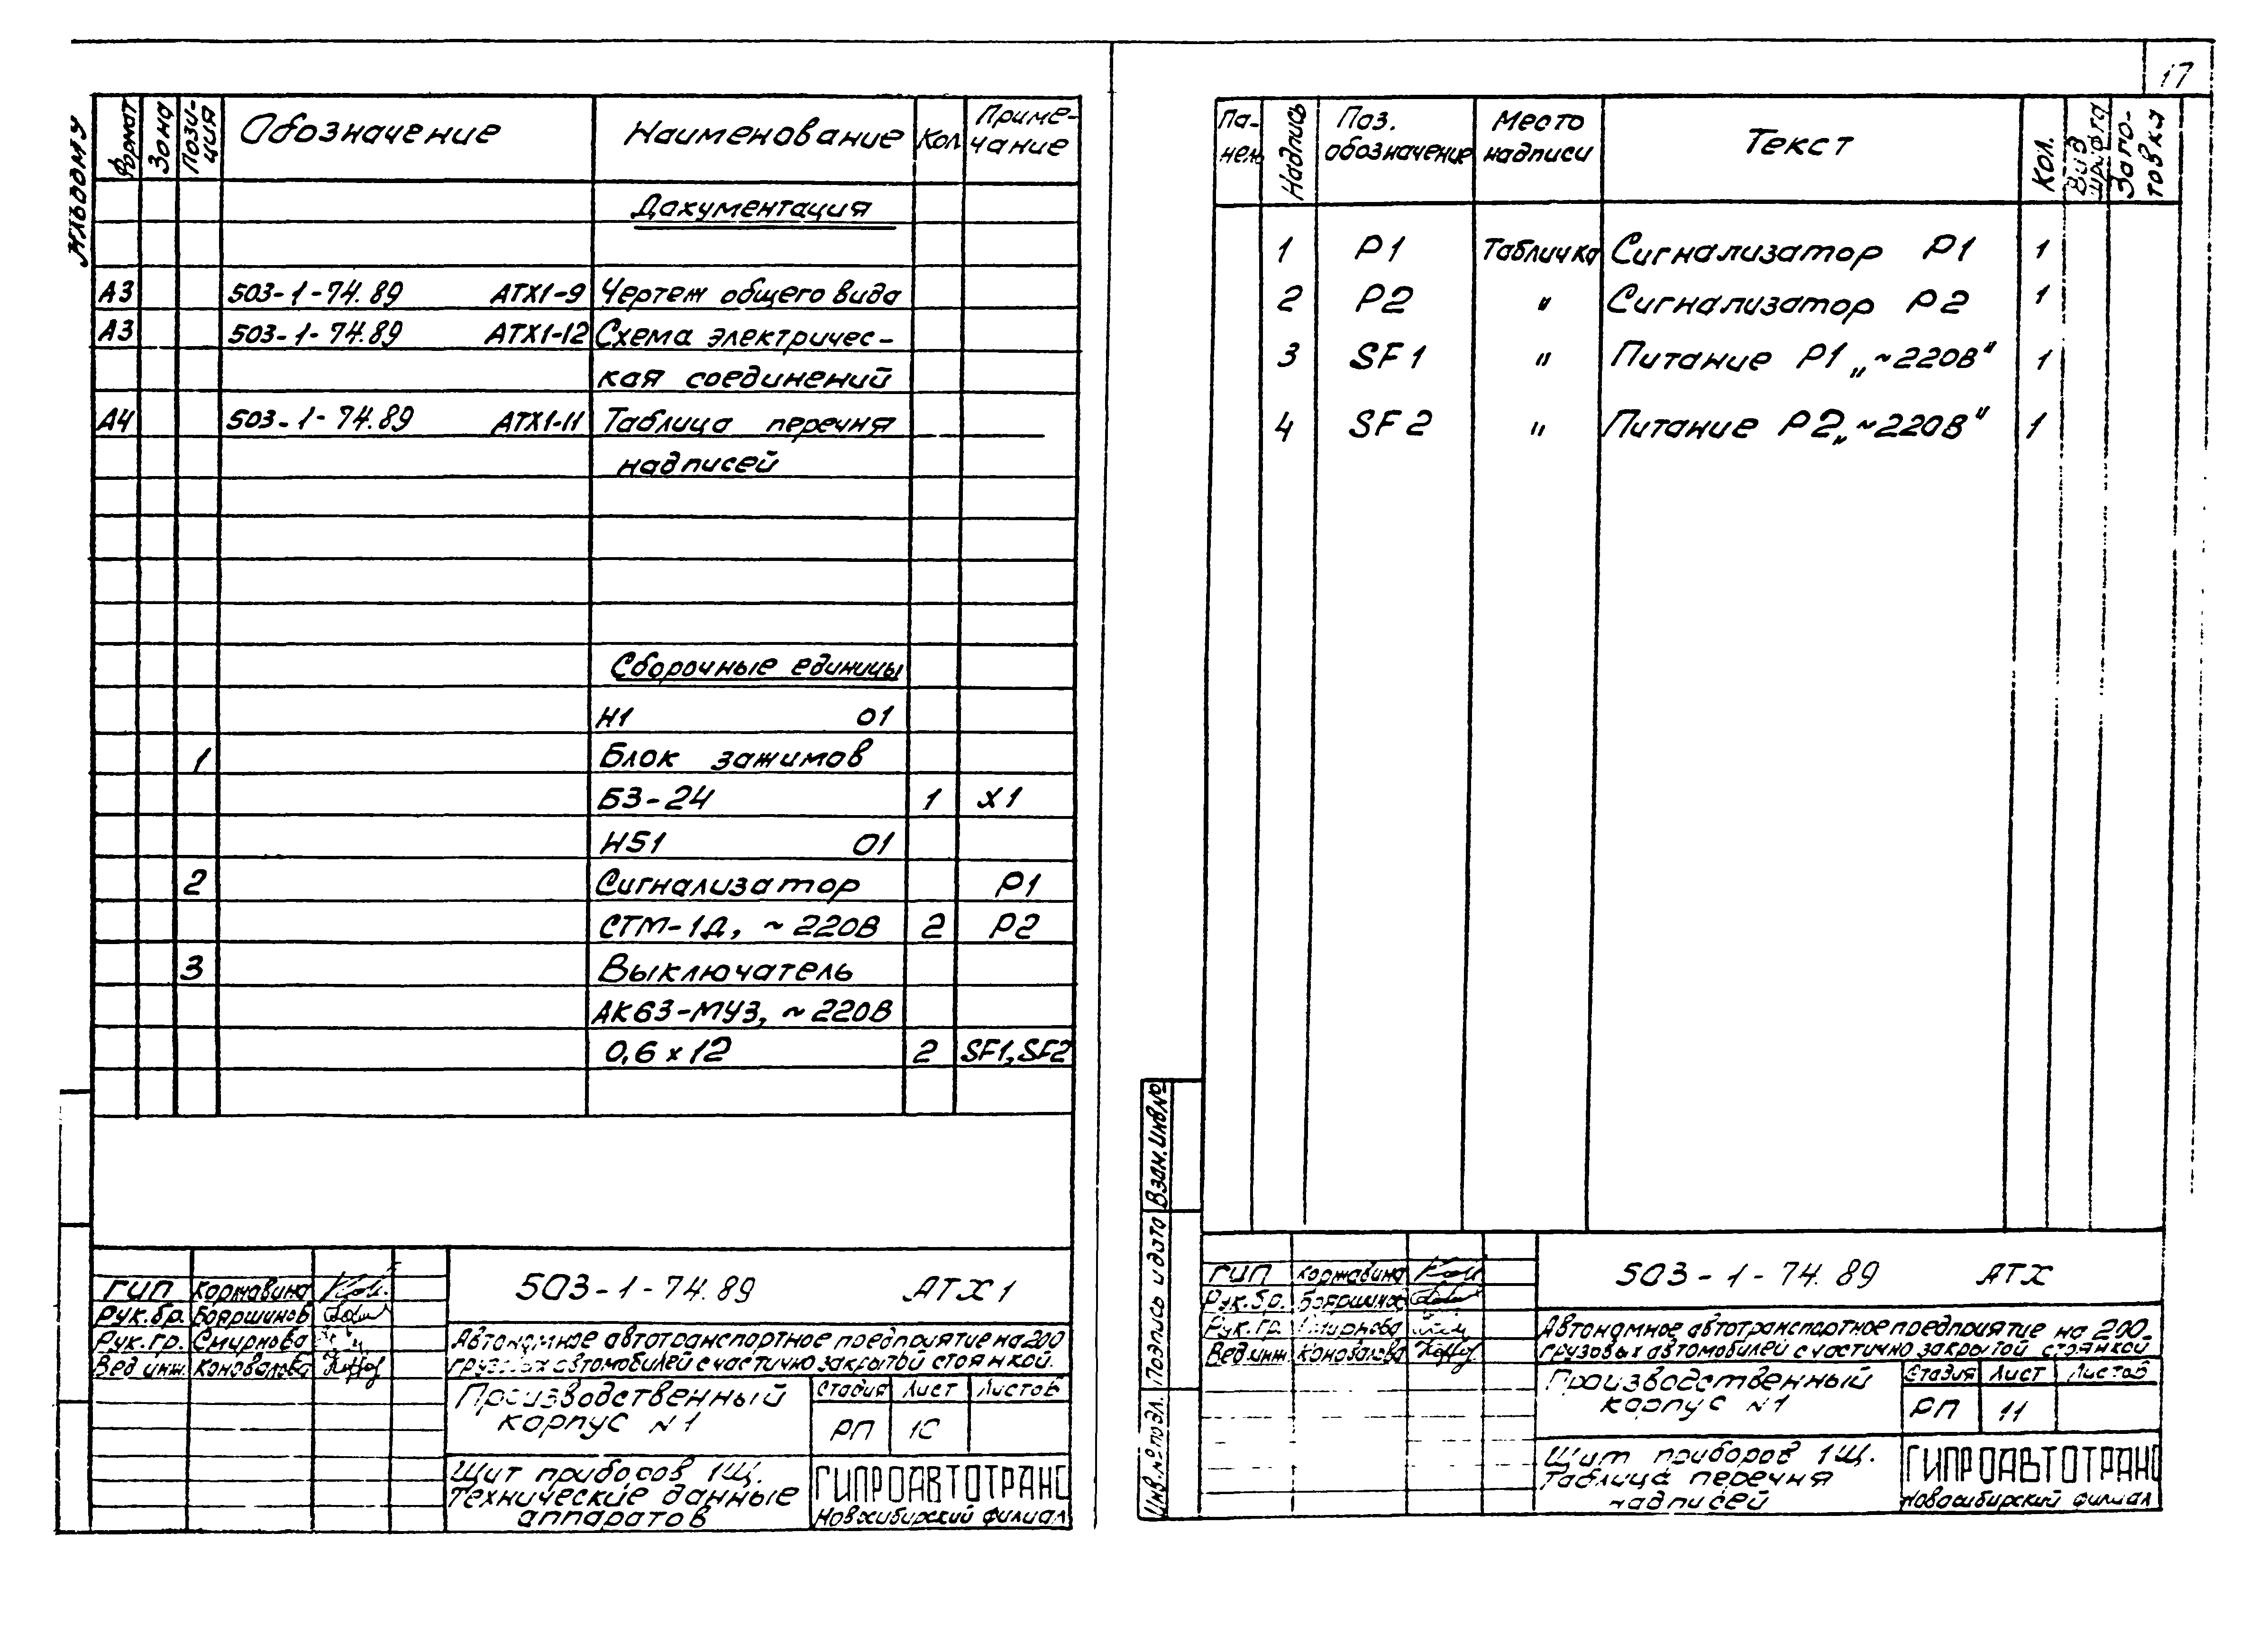 17
Альбому
Формат Зона Пози-ция Обозначение Наименование Кол Приме-чание
Документация
А3 503-1-74.89 АТХ1-9 Чертеж общего вида
А3 503-1-74.89 АТХ1-12 Схема электричес-
кая соединений
А4 503-1-74.89 АТХ1-11 Таблица перечня
надписей
Сборочные единицы
Н1 01
1 Блок зажимов
БЗ-24 1 Х1
Н51 01
2 Сигнализатор Р1
СТМ-1Д, ~220В 2 Р2
3 Выключатель
АК63-МУ3, ~220В
0,6х12 2 SF1,SF2
503-1-74.89 АТХ1
ГИП Коржавина
Рук.бр. Бояршинов
Рук.гр. Смирнова
Вед инж. Коновалова
Автономное автотранспортное предприятие на 200
грузовых автомобилей с частично закрытой стоянкой.
Производственный
корпус N1
Стадия Лист Листов
РП 1С
Щит приборов 1Щ.
Технические данные
аппаратов
ГИПРОАВТОТРАНС
Новосибирский филиал
Па-нель Надпись Поз. обозначение Место надписи Текст Кол. Вид шрифта Заго-товка
1 Р1 Табличка Сигнализатор Р1 1
2 Р2 " Сигнализатор Р2 1
3 SF1 " Питание Р1 „~220В" 1
4 SF2 " Питание Р2 „~220В" 1
Взам.инв.№
Подпись и дата
Инв.№ подл.
503-1-74.89 АТХ
ГИП Коржавина
Рук.бр. Бояршинов
Рук.гр. Смирнова
Вед.инж. Коновалова
Автономное автотранспортное предприятие на 200
грузовых автомобилей с частично закрытой стоянкой
Производственный
корпус N1
Стадия Лист Листов
РП 11
Щит приборов 1Щ.
Таблица перечня
надписей
ГИПРОАВТОТРАНС
Новосибирский филиал